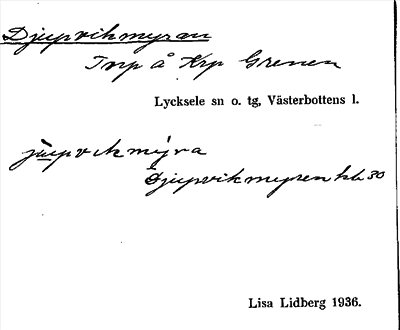 Djupvikmyran
Trp å Krp Grenen
Lycksele sn o. tg, Västerbottens l.
jʉupvikmýra
Djupvikmyren hb 30
Lisa Lidberg 1936.